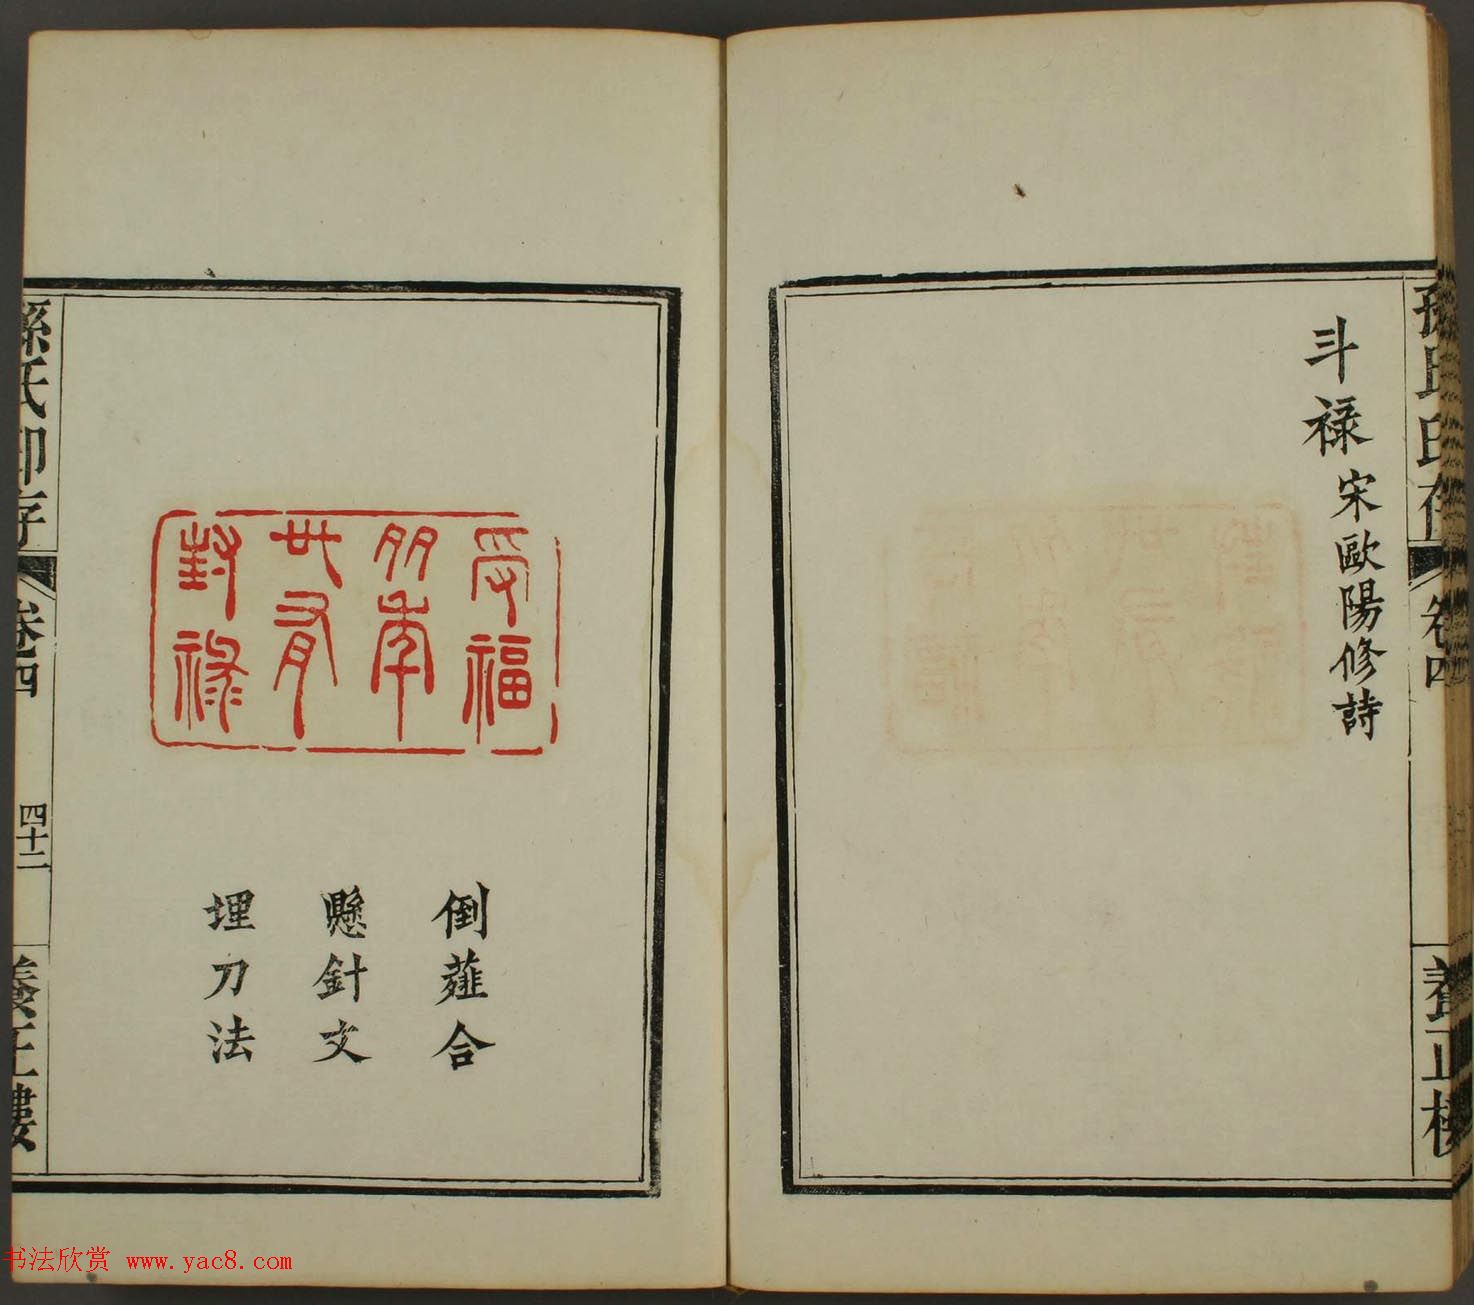 斗祿宋歐陽修詩
孫氏印存
卷四
養正樓
受福
朋年
世有
封祿
倒薤合
懸針文
埋刀法
孫氏印存
卷四
四十二
養正樓
书法欣赏 www.yac8.com